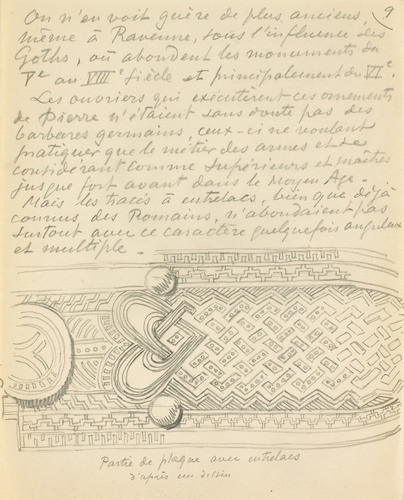 9
On n'en voit guère de plus anciens,
même à Ravenne, sous l'influence des
Goths, où abondent les monuments du
Ve au VIIIe siècle et principalement du VIe.
Les ouvriers qui exécutèrent ces ornements
de Pierre n'étaient sans doute pas des
barbares germains, ceux-ci ne voulant
pratiquer que le métier des armes et se
considérant comme supérieurs et maîtres
jusque fort avant dans le Moyen Age.
Mais les tracés à entrelacs, bien que déjà
connus des Romains, n'abondaient pas
surtout avec ce caractère quelquefois anguleux
et multiple.
Partie de plaque avec entrelacs
d'après un dessin